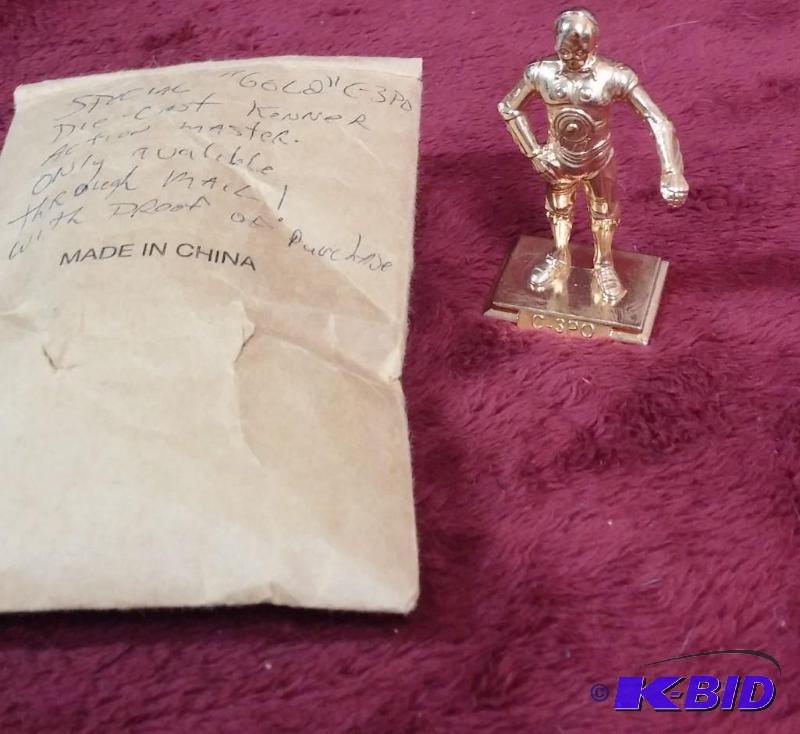 SPECIAL "GOLD" C-3PO
Die-Cast Kenner
Action master.
Only avalible
through MAIL!
with PROOF OF Purchase
MADE IN CHINA
C-3PO
© K-BID